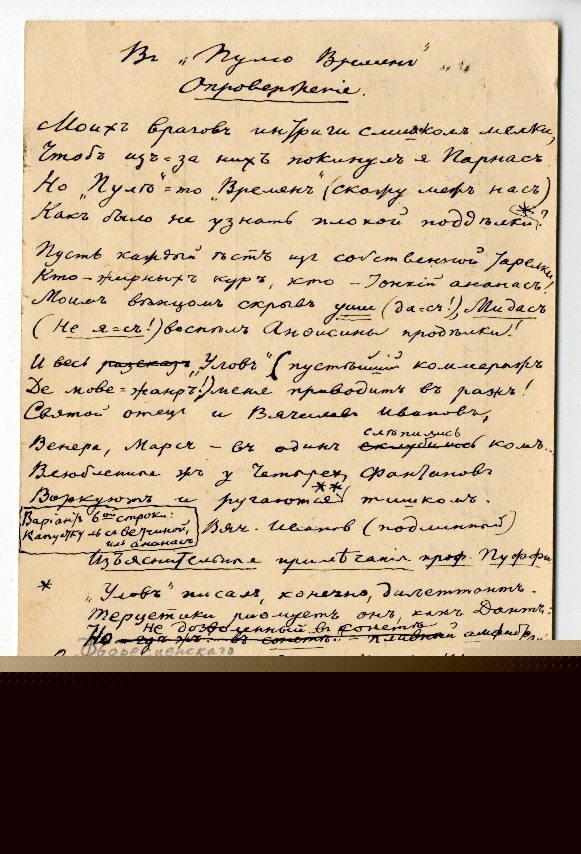 Въ „Пульс Времени“
Опроверженіе.
Моихъ враговъ интриги слишкомъ мелки,
Чтобъ изъ=за нихъ покинулъ я Парнасъ.
Но „Пульс“=то „Времени“ (скажу межъ насъ)
Какъ было не узнать плохой поддѣлки?*
Пусть каждый ѣстъ изъ собственной тарелки
Кто – жирныхъ куръ, кто – тонкій ананасъ!
Моимъ вѣнцомъ скрывъ уши (да=съ!), Мидасъ
(Не я=съ!) воспѣлъ Анойсины продѣлки!
И весь разсказъ „Уловъ“ (пустѣйшій коммеражъ
Де мове=жанръ!) меня приводитъ въ ражъ!
Святой отецъ и Вячеславъ Ивановъ,
Венера, Марсъ – въ одинъ склубились слѣпились комъ..
Влюбленные жъ у Четырехъ Фонтановъ
Воркуютъ и ругаются** тишкомъ.
Варіантъ 6ой строки:
Капустку ль съ ветчиной,
иль ананасъ
Вяч. Ивановъ (подлинный)
Изъяснительныя примѣчанія проф. Пуффи
* „Уловъ“ писалъ, конечно, дилеттантъ.
Терцетики рисуетъ онъ, какъ Дантъ:
не дозволенный въ сонетѣ
Но – гдѣ жъ въ сонетѣ –
Дворецненскаго